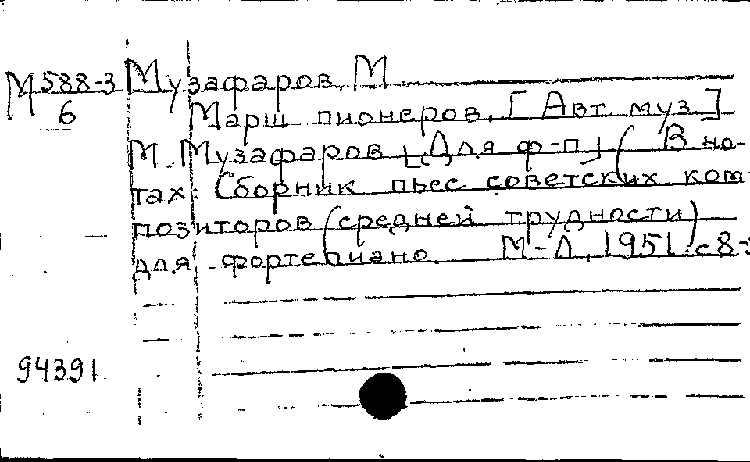 М 588-3 Музафаров, М.
6 Марш пионеров. [Авт. муз.]
М. Музафаров. [Для ф-п] (В но-
тах: Сборник пьес советских ком-
позиторов (средней трудности)
для фортепиано. М-Л, 1951. с 8-
94391